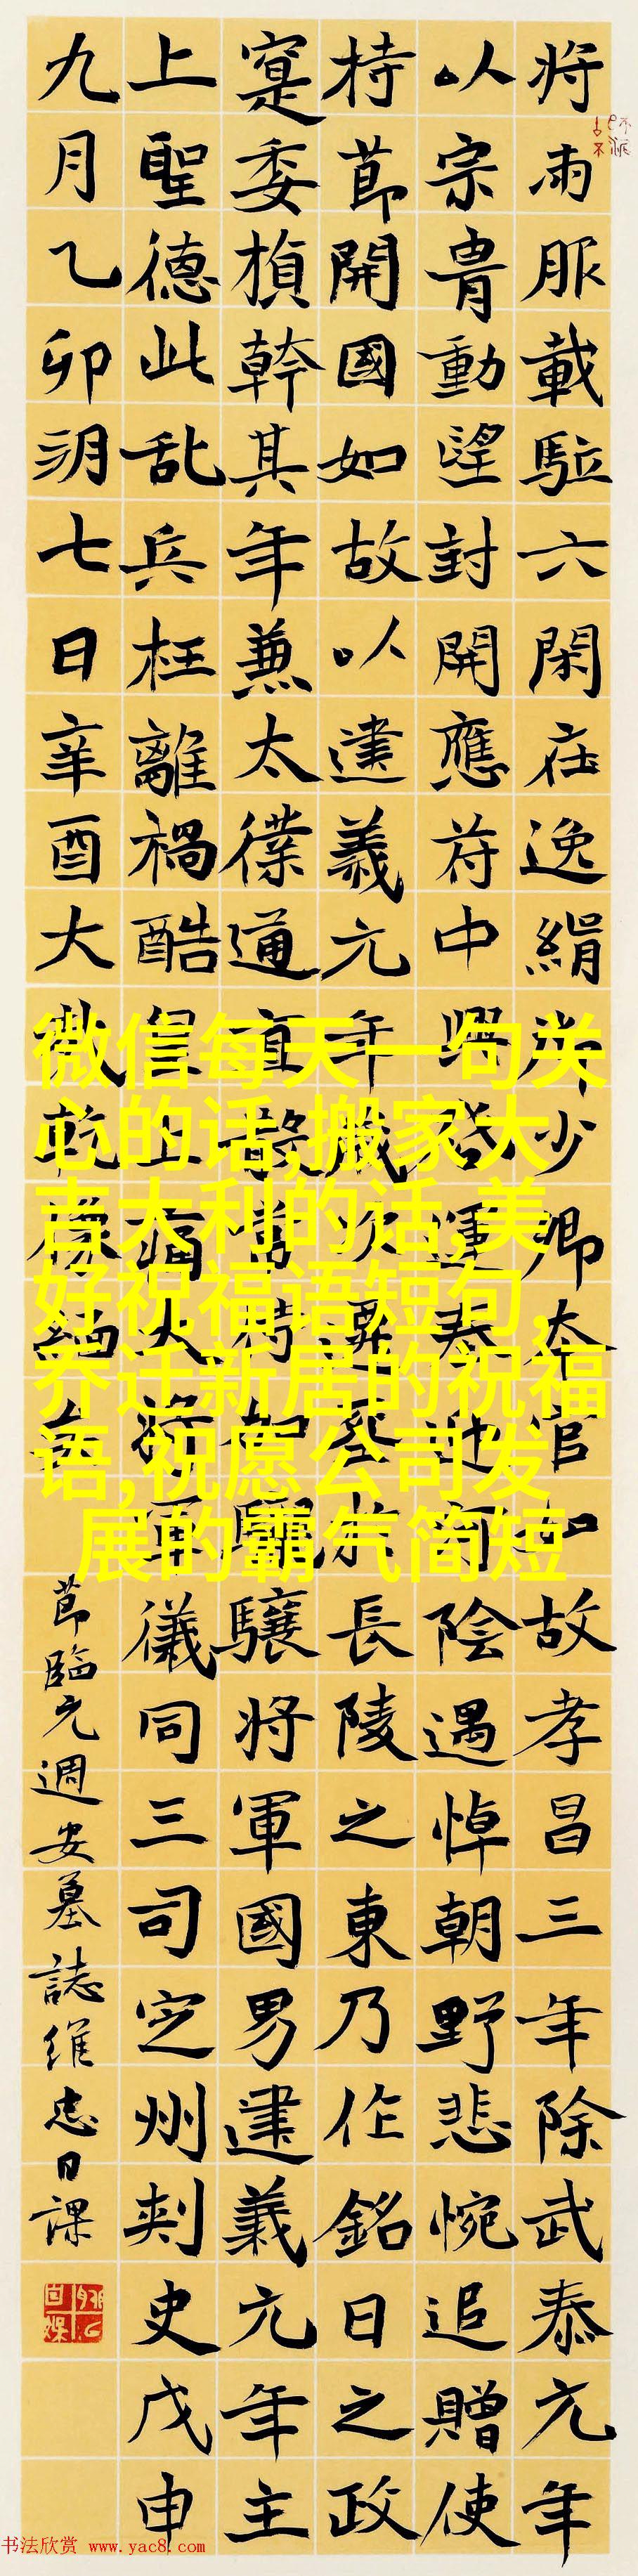 将雨服載駈六閑在逸絹少卿太官如故孝昌三年除武泰元年
以宗胄動望封開應符中興啓運奉迎陰遇悼朝野悲惋追贈使
持節開國如故以建義元年歲次遷葬於長陵之東乃作銘曰之政
寔委楨幹其年兼太僕通直散常如驤将軍國男建義元年主
上聖德此乱兵枉離禍酷上痛大将軍儀同三司定州刺史戊申
九月乙卯朔七日辛酉大
節臨元週安墓誌維忠日課
微信每天一句关
心的话,搬家大
吉大利的话,美
好祝福语短句,
乔迁新居的祝福
语,祝愿公司发
展的霸气简短
书法欣赏 www.yac8.com